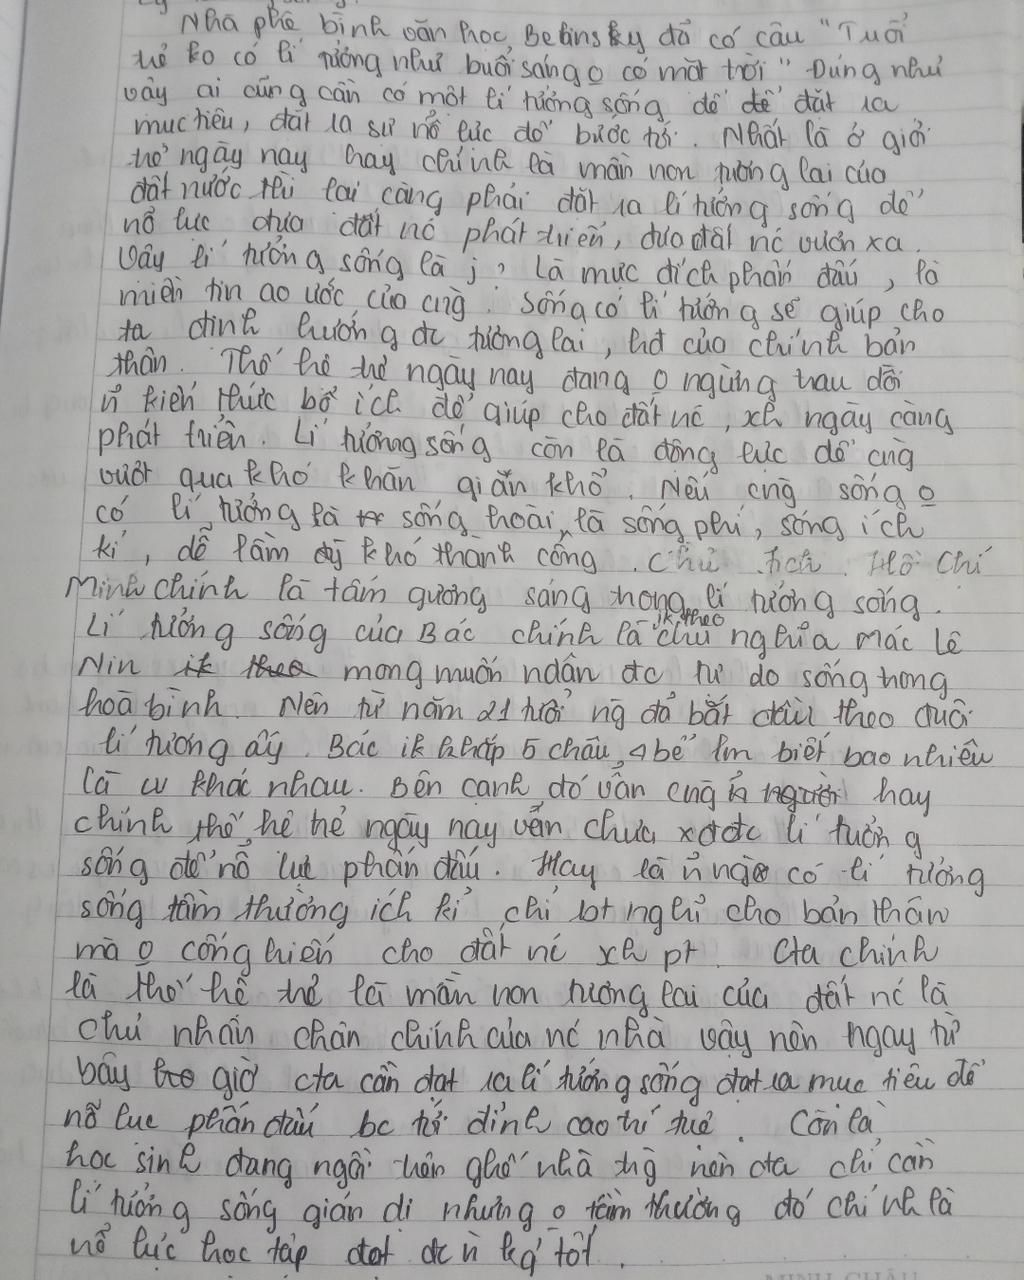 Nhà phê bình văn học Belinsky đã có câu "Tuổi
trẻ ko có lí tưởng như buổi sáng o có mặt trời" Đúng như
vậy ai cũng cần có một lí tưởng sống để đặt ra
mục tiêu, đặt ra sự nổ lực để bước tới. Nhất là ở giới
trẻ ngày nay hay chính là mần non tương lai của
đất nước thì lại càng phải đặt ra lí tưởng sống để
nổ lực đưa đất nc phát triển, đưa đất nc vươn xa.
Vậy lí tưởng sống là j? Là mục đích phấn đấu, là
miền tin ao ước của cng. Sống có lí tưởng sẽ giúp cho
ta định hướng đc tương lai, hđ của chính bản
thân. Thế hệ trẻ ngày nay đang o ngừng trau dồi
n~ kiến thức bổ ích để giúp cho đất nc, xh ngày càng
phát triển. Lí tưởng sống còn là động lực để cng
vượt qua khó khăn gian khổ. Nếu cng sống o
có lí tưởng là sống hoài, là sống phí, sống ích
kỉ, dễ lầm khó thành công. Chủ tịch Hồ Chí
Minh chính là tấm gương sáng trong lí tưởng sống.
Lí tưởng sống của Bác chính là ik theo chủ nghĩa Mác Lê
Nin mong muốn ndân đc tự do sống trong
hoà bình. Nên từ năm 21 tuổi ng đã bắt đầu theo đuổi
lí tương ấy. Bác ik khắp 5 châu, 4 bể lm biết bao nhiêu
là cv khác nhau. Bên cạnh đó vẫn cng n~ người hay
chính thế hệ trẻ ngày nay vẫn chưa xđ đc lí tưởng
sống để nổ lực phấn đấu. Hay là n~ ng có lí tưởng
sống tầm thường ích kỉ chỉ bt nghỉ cho bản thân
mà o cống hiến cho đất nc xh pt. Cta chính
là thế hệ trẻ là mần non tương lai của đất nc là
chủ nhân chân chính của nc nhà vậy nên ngay từ
bây giờ cta cần đạt ra lí tưởng sống đạt ra mục tiêu để
nỗ lực phấn đấu bc tới đỉnh cao trí tuệ. Còn là
học sinh đang ngồi trên ghế nhà trg nên cta chỉ cần
lí tưởng sống giản dị nhưng o tầm thường đó chính là
nổ lực học tập đạt đc n~ kq tốt.